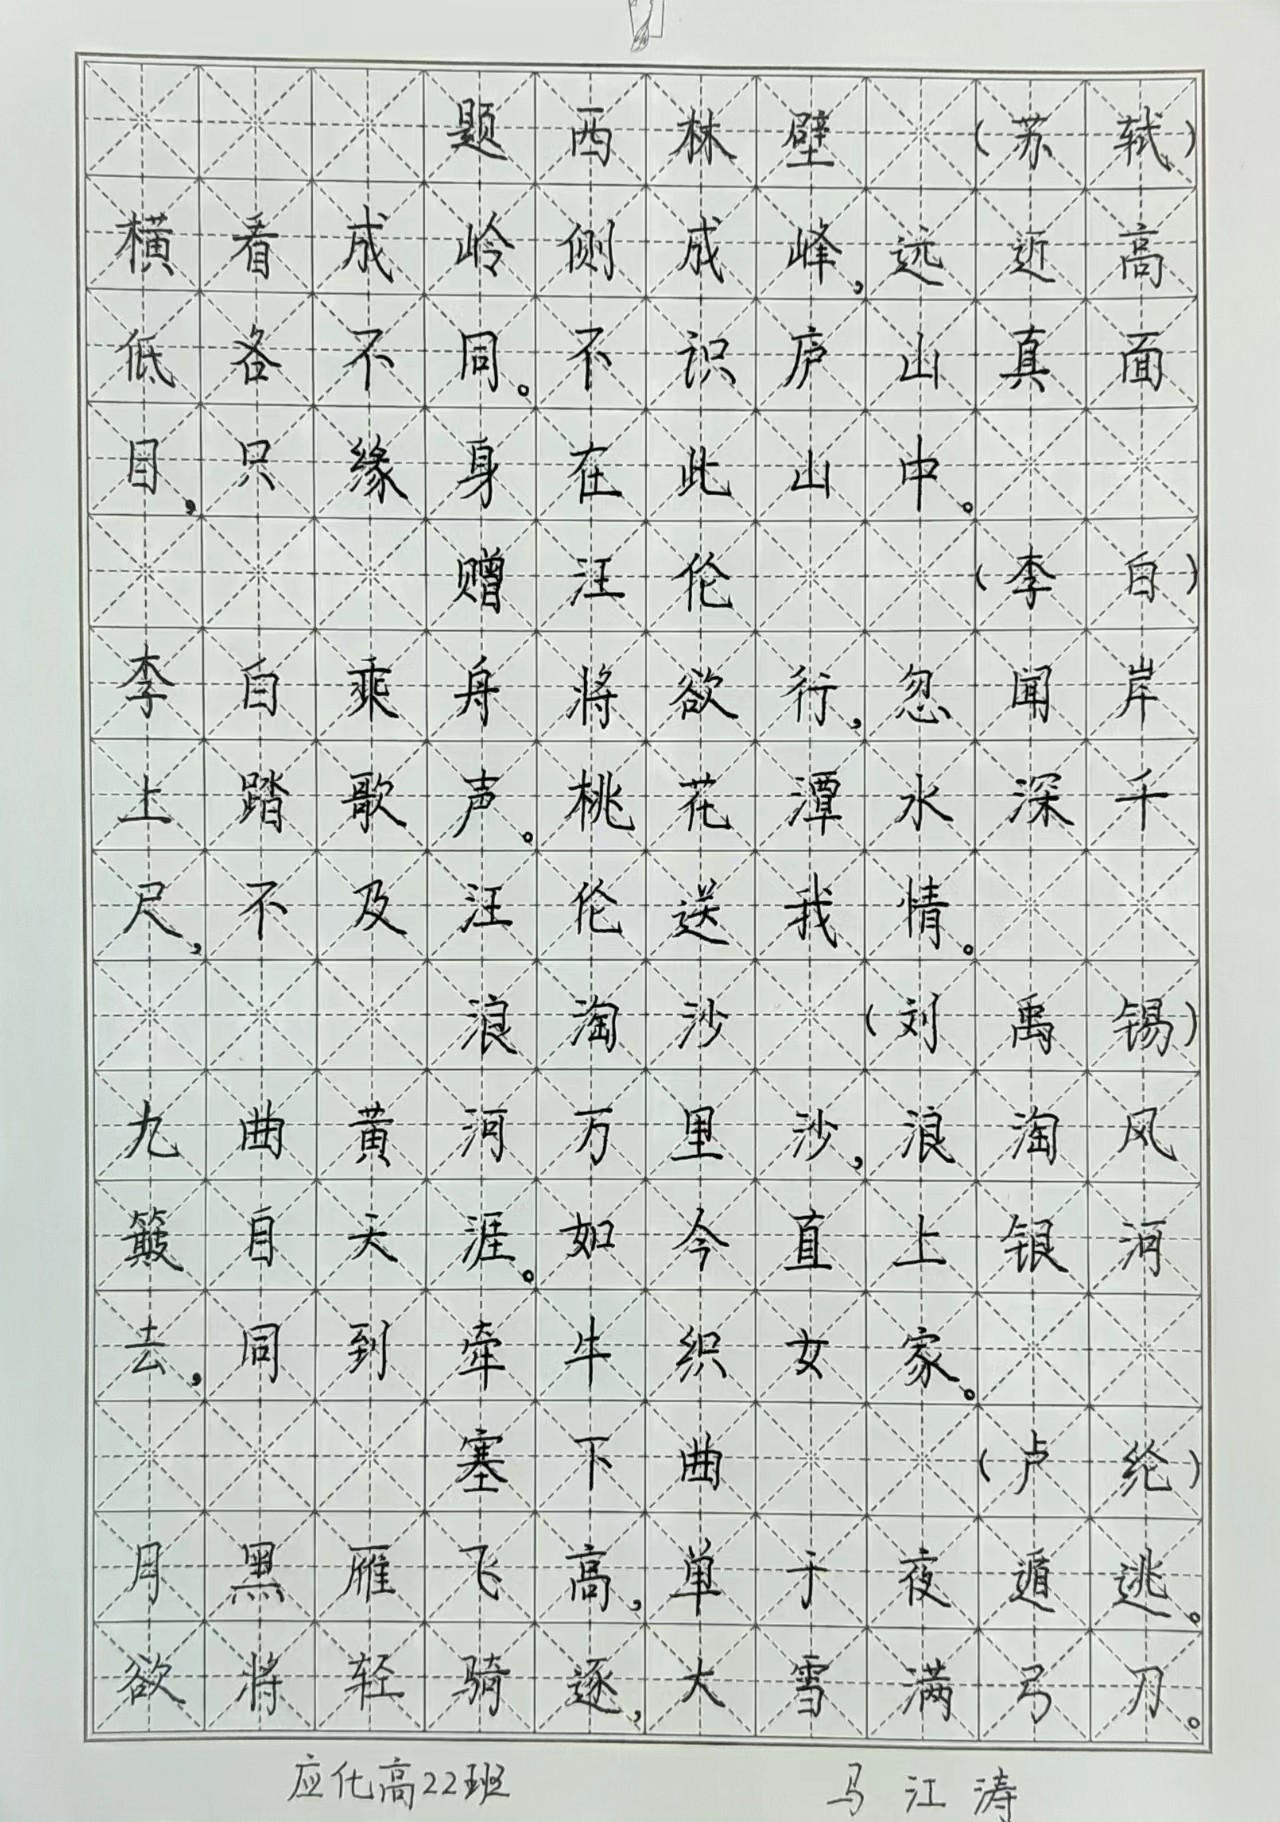 题西林壁 (苏轼)
横看成岭侧成峰,远近高
低各不同。不识庐山真面
目,只缘身在此山中。
赠汪伦 (李白)
李白乘舟将欲行,忽闻岸
上踏歌声。桃花潭水深千
尺,不及汪伦送我情。
浪淘沙 (刘禹锡)
九曲黄河万里沙,浪淘风
簸自天涯。如今直上银河
去,同到牵牛织女家。
塞下曲 (卢纶)
月黑雁飞高,单于夜遁逃。
欲将轻骑逐,大雪满弓刀。
应化高22班 马江涛